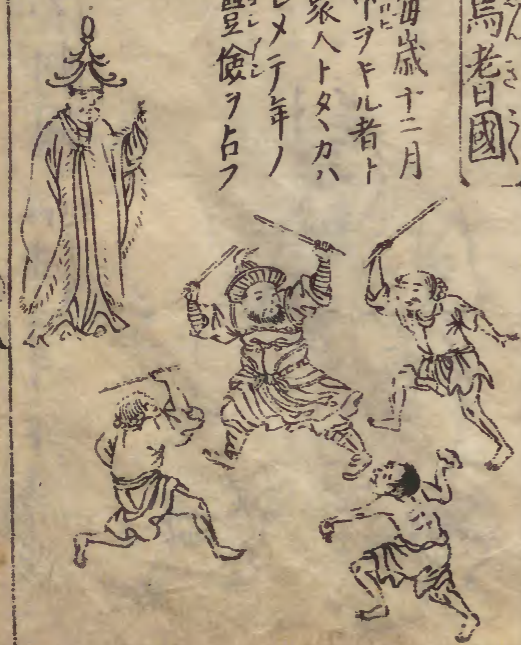 焉耆國
毎歳十二月
甲ヲキル者ト
衆人トタヽカハ
シメテ年ノ
豐儉ヲ占フ